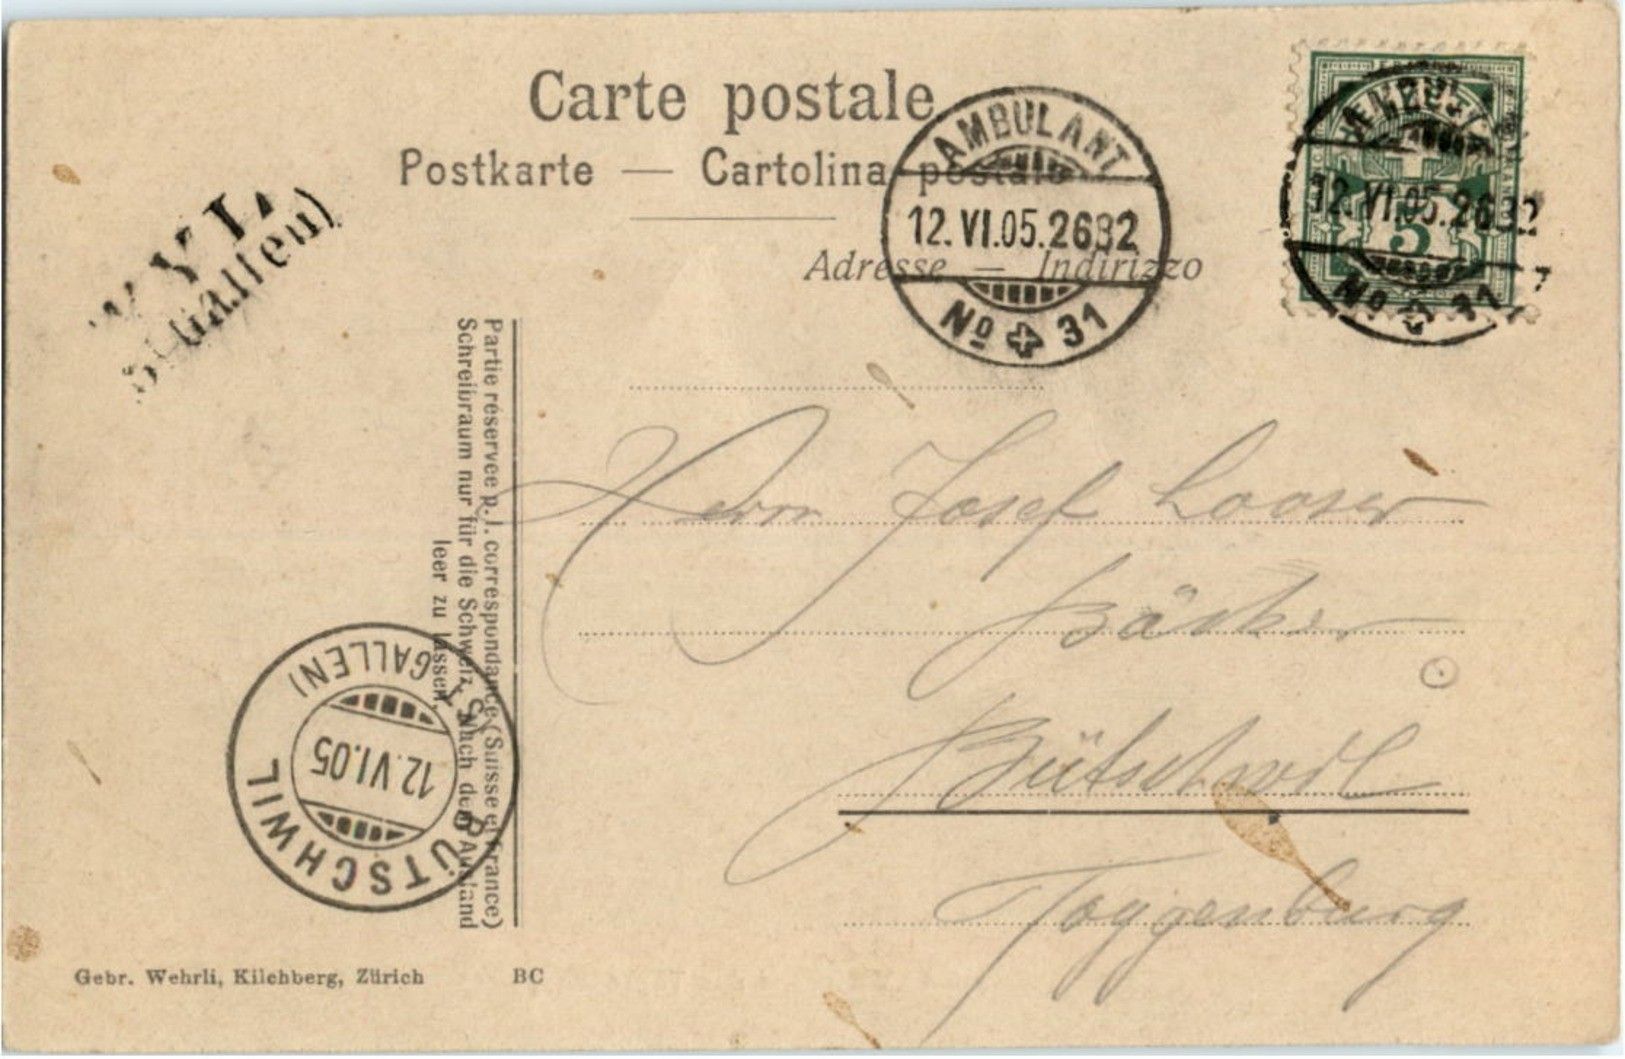 Carte postale
Postkarte — Cartolina postale
Adresse — Indirizzo
AMBULANT
12.VI.05.2632
No 31
AMBULANT
12.VI.05.2632
No 31
5
WYL
St. Gallen)
Partie réservée p. l. correspondance (Suisse et France)
Schreibraum nur für die Schweiz. Nach dem Ausland
leer zu lassen.
Herrn Josef Looser
Bäcker
Bütschwil
Toggenburg
BÜTSCHWIL
12.VI.05
(ST. GALLEN)
Gebr. Wehrli, Kilchberg, Zürich BC